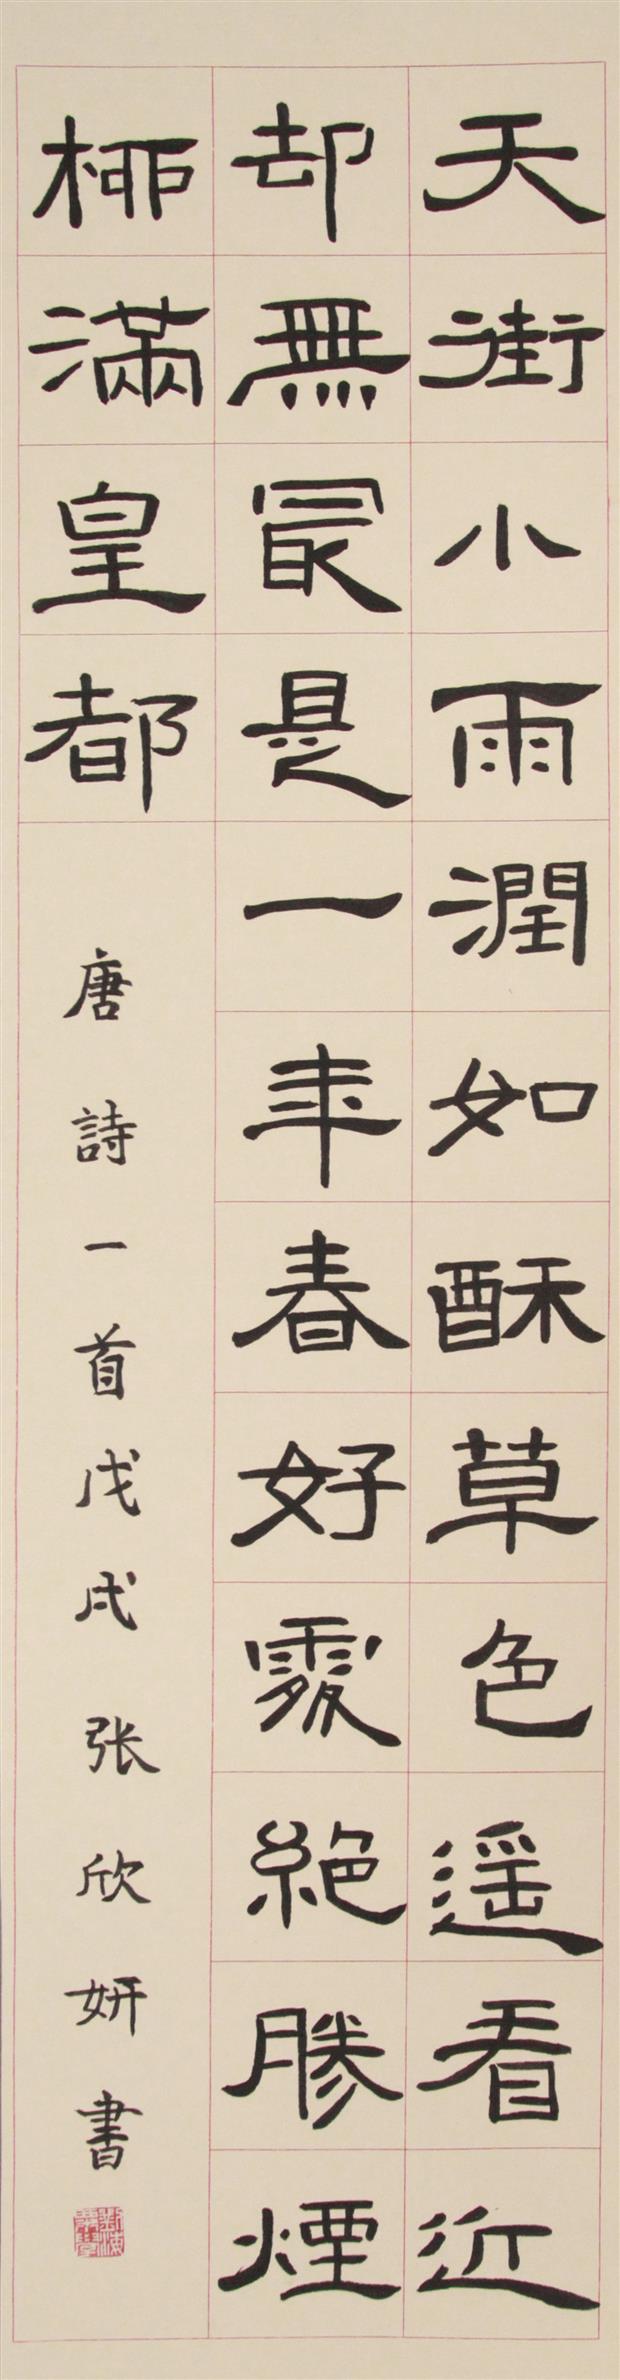 天街小雨潤如酥草色遥看近
却無最是一年春好處絕勝煙
柳滿皇都
唐詩一首戊戌张欣妍書